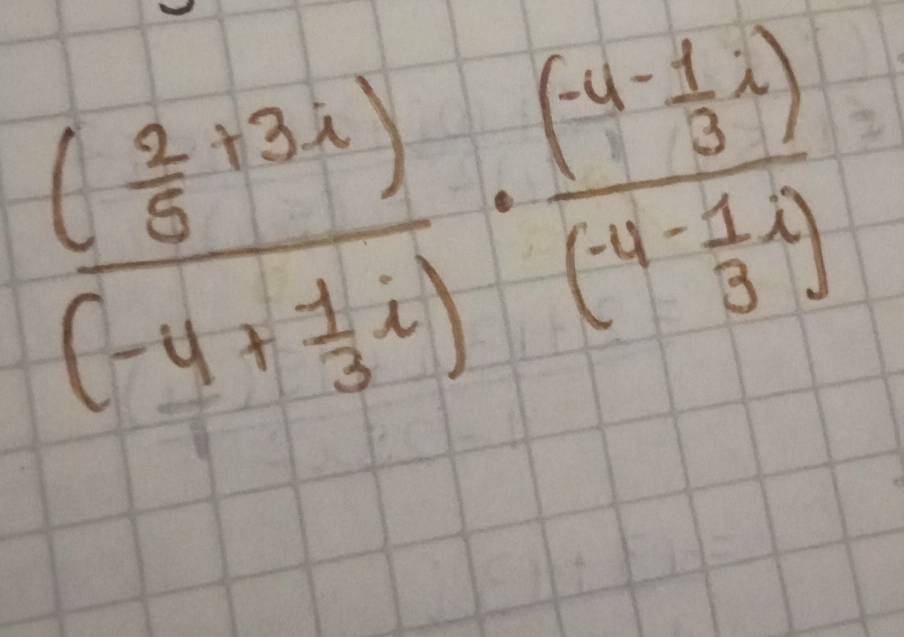 (2/5 + 3i) / (-4 + 1/3 i) · (-4 - 1/3 i) / (-4 - 1/3 i)